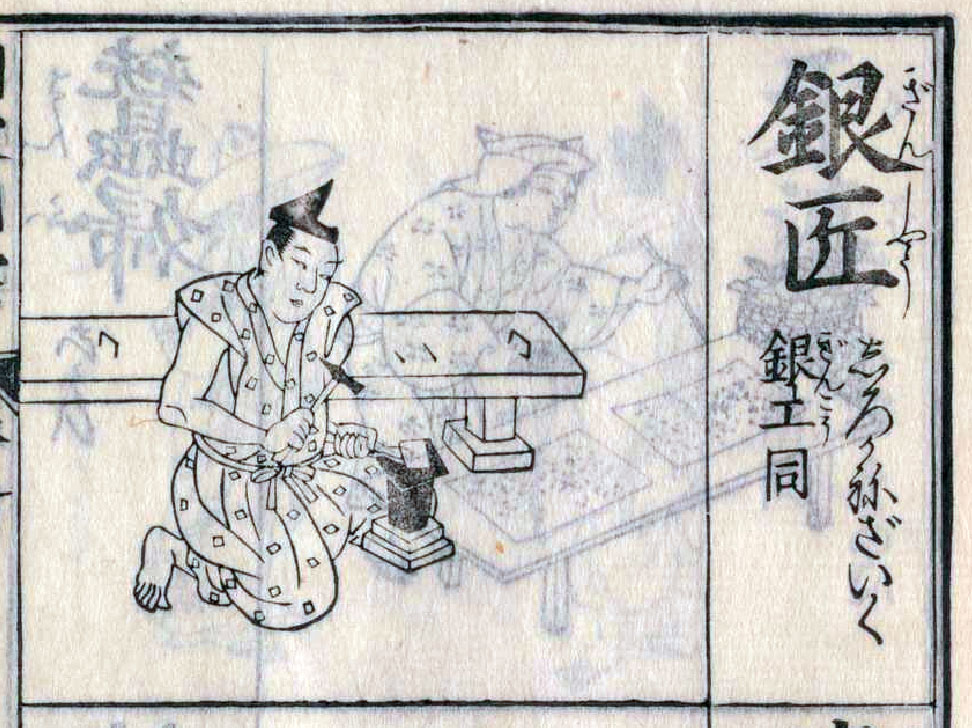 ぎんしやう
銀匠
しろかねざいく
ぎんこう
銀工同